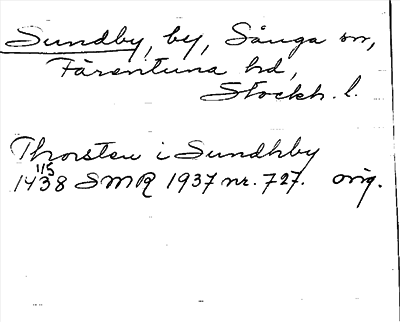 Sundby, by, Sånga sn,
Färentuna hd,
Stockh. l.
Thorsten i Sundhby
1438 11/5 SMR 1937 nr. 727. orig.